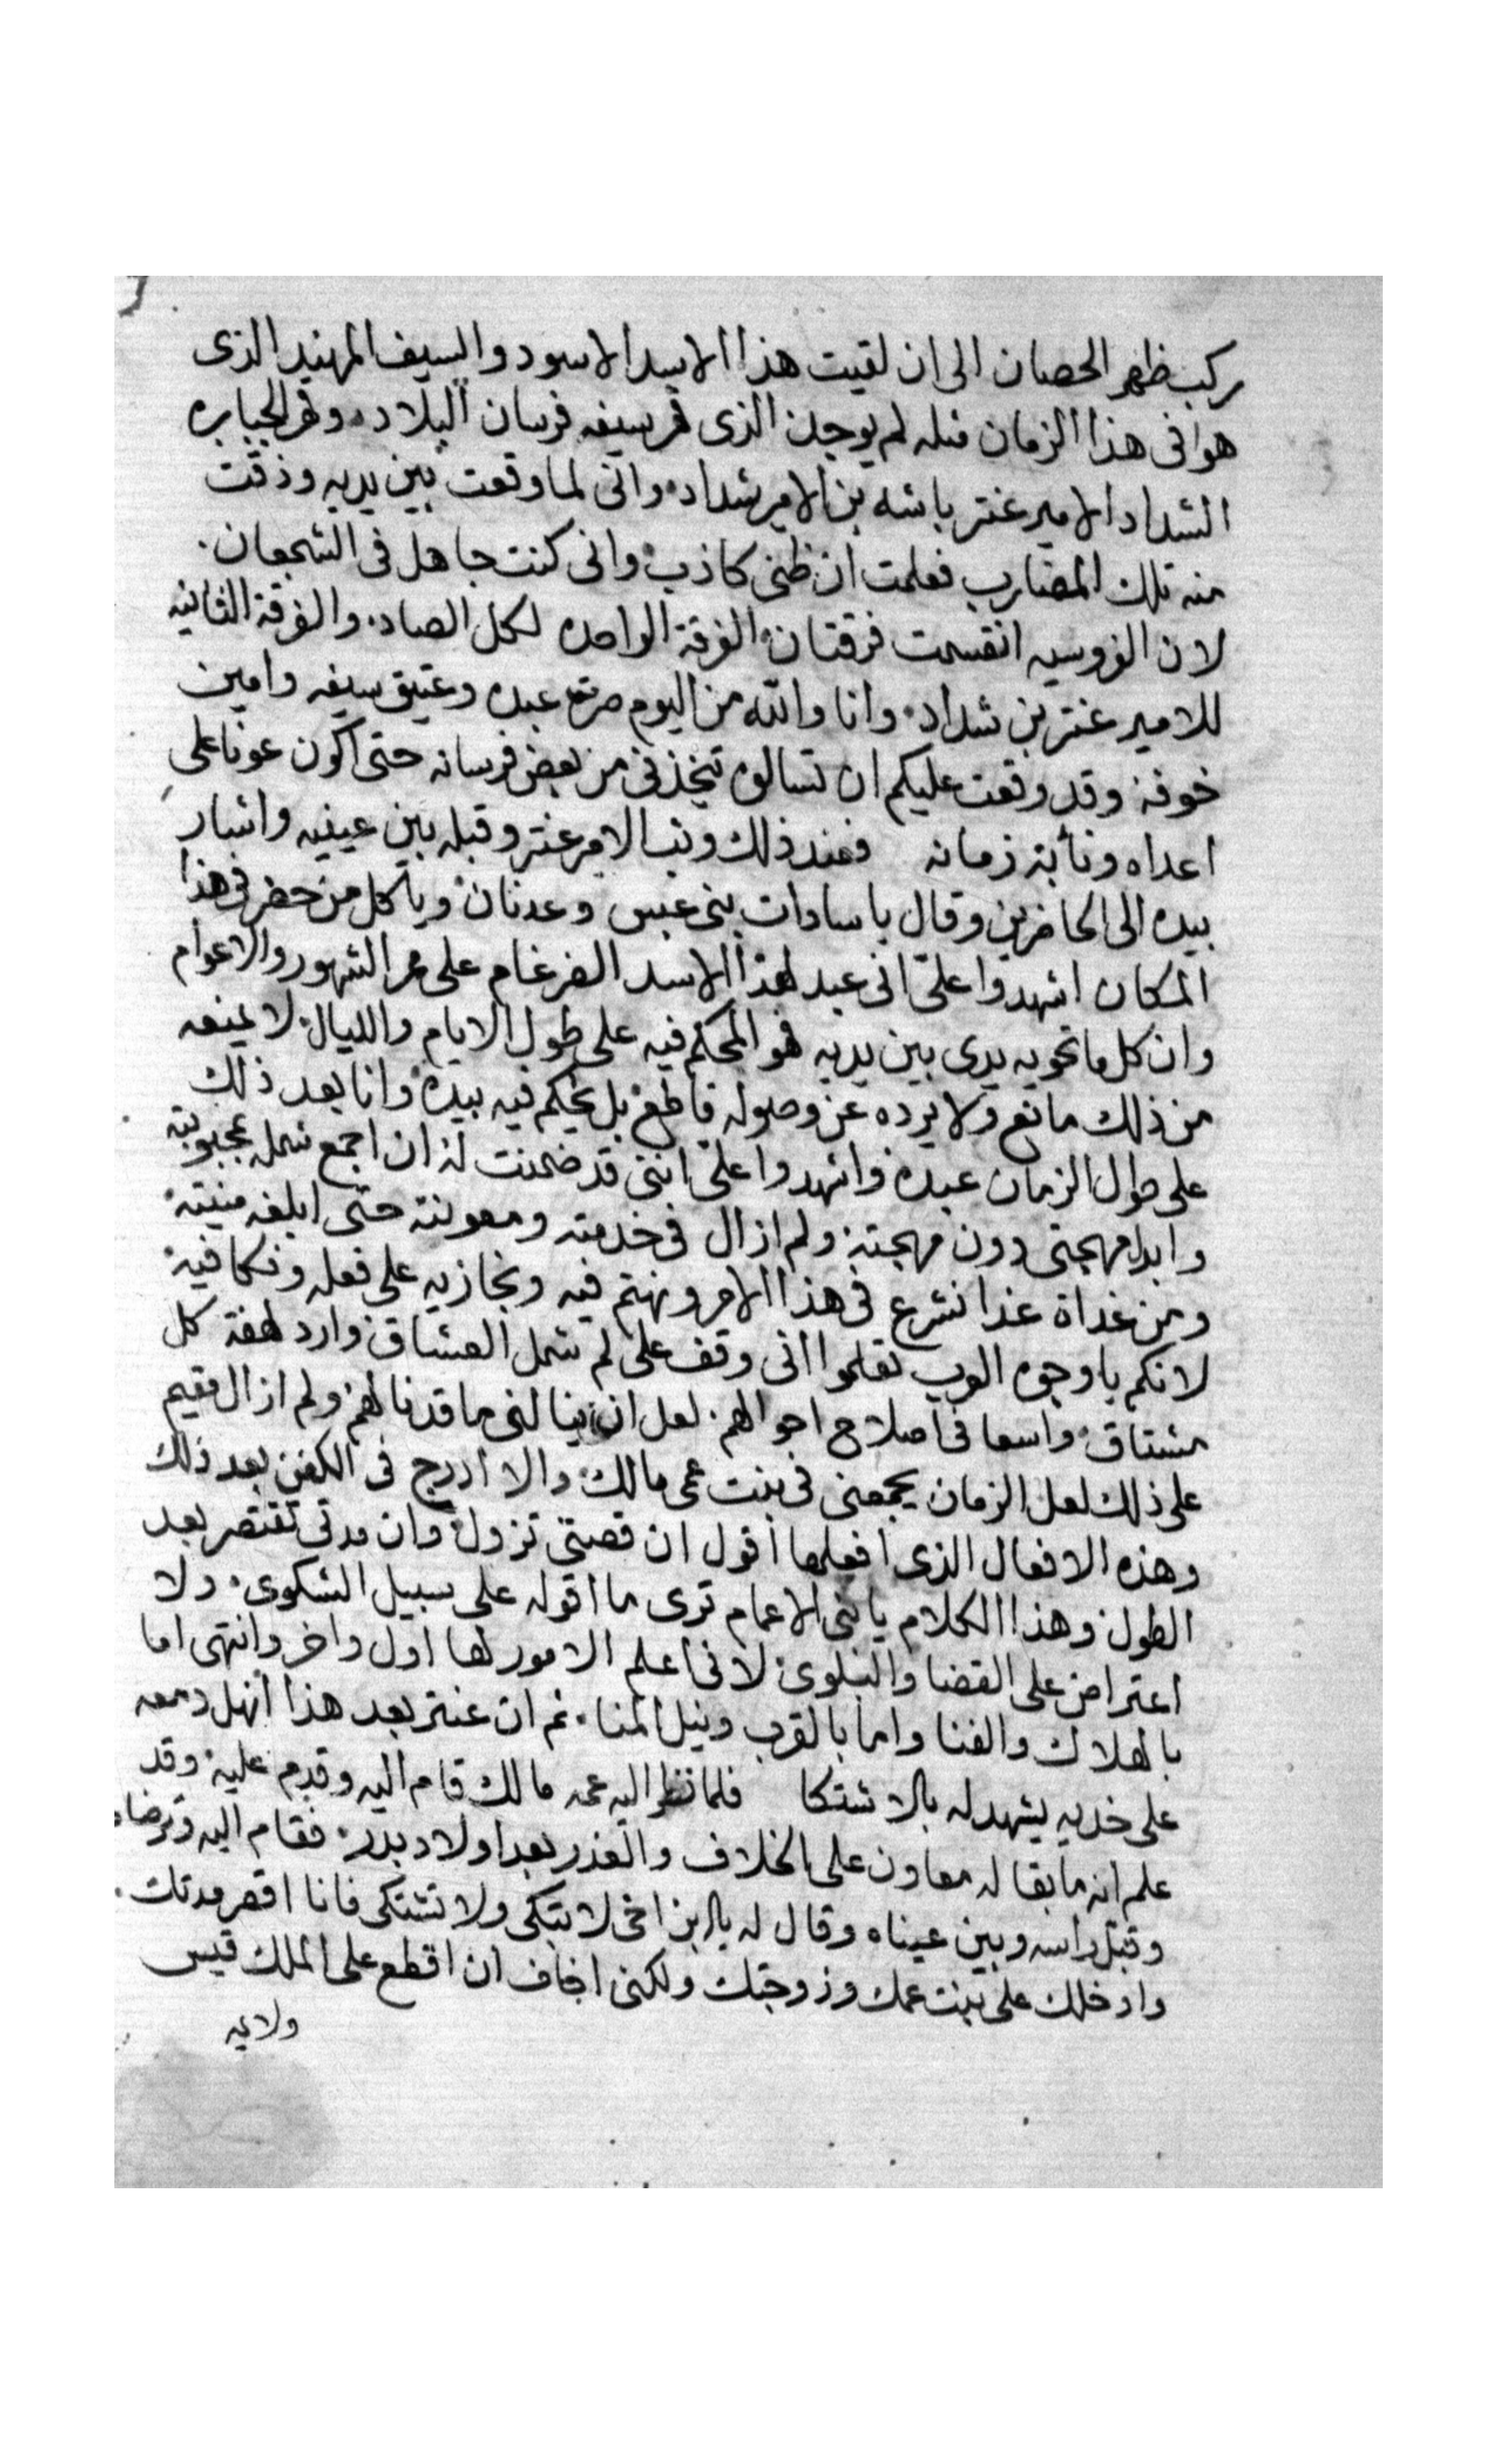 ركب ظهر الحصان الى ان لقيت هذا الاسد الاسود والسيف المهند الذى
هوا فى هذا الزمان مثله لم يوجد الذى قهر بسيفه فرسان البلاد وقهر الجبابره
الشداد الامير عنتر باشه بن الامير شداد وانى لما وقعت بين يديه وذقت
منه تلك المضارب فعلمت ان ظنى كاذب وانى كنت جاهل فى الشجعان
لان الفروسيه انقسمت فرقتان الفرقة الواحده لكل العباد والفرقة الثانيه
للامير عنتر بن شداد وانا والله من اليوم صرت عبده وعتيق سيفه وامين
خوفه وقد وقعت عليكم ان تسالوه يتخذنى من بعض فرسانه حتى اكون عونا على
اعداه ونائبة زمانه فعند ذلك وثب الامير عنتر وقبله بين عينيه واشار
بيده الى الحاضرين وقال يا سادات بنى عبس وعدنان ويا كل من حضر فى هذا
المكان اشهدوا علىّ انى عبد لهذا الاسد الضرغام على ممر الشهور والاعوام
وان كل ما تحويه يدى بين يديه فهو المحكم فيه على طول الايام والليال لا يمنعه
من ذلك مانع ولا يرده عن وصوله قاطع بل يحكم فيه بيده وانا بعد ذلك
على طول الزمان عبده واشهدوا علىّ اننى قد ضمنت له ان اجمع شمله بمحبوبته
وابدا مهجتى دون مهجته ولم ازال فى خدمته ومعونته حتى ابلغه منيته
ومن غداة غدا نشرع فى هذا الامر ونهتم فيه ونجازيه على فعله ونكافيه
لانكم يا وجوه العرب تعلموا انى وقف على لم شمل العشاق وارد لهفة كل
مشتاق واسعا فى اصلاح احوالهم لعل ان ينالنى ما قد نالهم ولم ازال مقيم
على ذلك لعل الزمان يجمعنى فى بنت عمى مالك والا ادرج فى الكفن بعد ذلك
وهذه الافعال الذى افعلها اقول ان قصتى تزول وان مدتى تقتصر بعد
الطول وهذا الكلام يا بنى الاعمام ترى ما اقوله على سبيل الشكوى ولا
اعتراض على القضا والبلوى لانى اعلم الامور لها اول واخر وانتهى اما
بالهلاك والفنا واما بالقرب ونيل المنا ثم ان عنتر بعد هذا انهل دمعه
على خديه يشهد له بالاشتكا فلما نظر اليه عمه مالك قام اليه وقدم عليه وقد
علم انه ما بقا له معاون على الخلاف والغدر بعد اولاد بدر فقام اليه وترضاه
وقبل راسه وبين عيناه وقال له يا ابن اخى لا تبكى ولا تشتكى فانا اقصر مدتك
وادخلك على بنت عمك وزوجتك ولكنى اخاف ان اقطع على الملك قيس